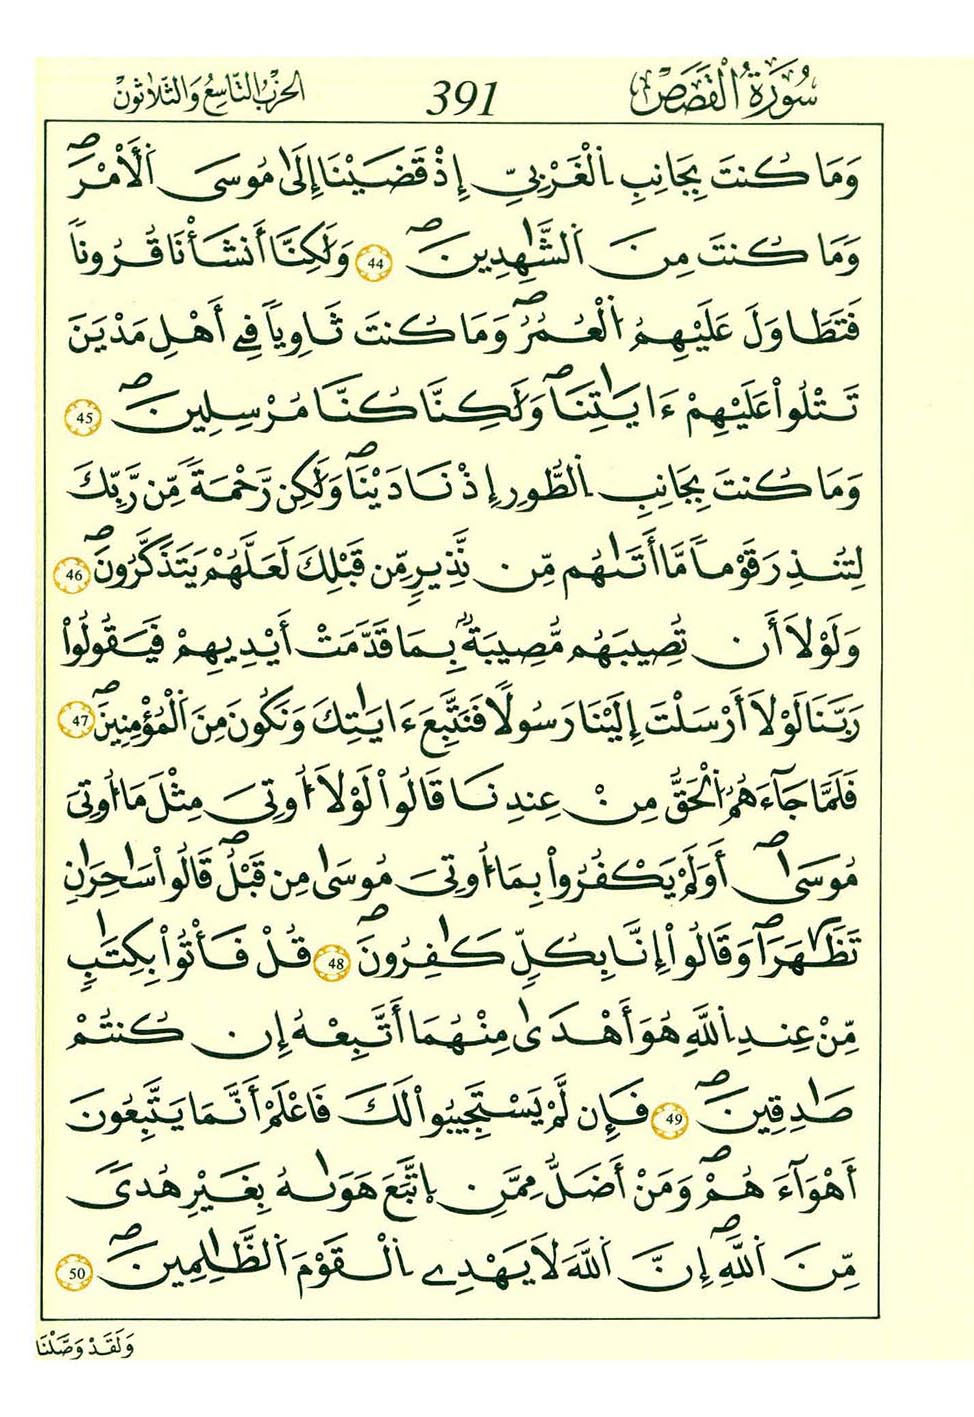 سُورَةُ الْقَصَصِ 391 الحِزْبُ التَّاسِعُ وَالثَّلَاثُونَ
وَمَا كُنتَ بِجَانِبِ اِ۬لْغَرْبِيِّ إِذْ قَضَيْنَا إِلَىٰ مُوسَى اَ۬لَامْرَۖ
وَمَا كُنتَ مِنَ اَ۬لشَّٰهِدِينَۖ 44 وَلَٰكِنَّا أَنشَأْنَا قُرُوناٗ
فَتَطَاوَلَ عَلَيْهِمُ اُ۬لْعُمُرُۖ وَمَا كُنتَ ثَاوِياٗ فِے أَهْلِ مَدْيَنَ
تَتْلُواْ عَلَيْهِمْ ءَايَٰتِنَاۖ وَلَٰكِنَّا كُنَّا مُرْسِلِينَۖ 45
وَمَا كُنتَ بِجَانِبِ اِ۬لطُّورِ إِذْ نَادَيْنَاۖ وَلَٰكِن رَّحْمَةٗ مِّن رَّبِّكَ
لِتُنذِرَ قَوْماٗ مَّا أَتَىٰهُم مِّن نَّذِيرٖ مِّن قَبْلِكَ لَعَلَّهُمْ يَتَذَكَّرُونَۖ 46
وَلَوْلَا أَن تُصِيبَهُم مُّصِيبَةُۢ بِمَا قَدَّمَتْ أَيْدِيهِمْ فَيَقُولُواْ
رَبَّنَا لَوْلَا أَرْسَلْتَ إِلَيْنَا رَسُولاٗ فَنَتَّبِعَ ءَايَٰتِكَ وَنَكُونَ مِنَ اَ۬لْمُؤْمِنِينَۖ 47
فَلَمَّا جَآءَهُمُ اُ۬لْحَقُّ مِنْ عِندِنَا قَالُواْ لَوْلَا أُوتِيَ مِثْلَ مَا أُوتِيَ
مُوسَىٰۖ أَوَلَمْ يَكْفُرُواْ بِمَا أُوتِيَ مُوسَىٰ مِن قَبْلُۖ قَالُواْ سَٰحِرَٰنِ
تَظَّٰهَرَاۖ وَقَالُواْ إِنَّا بِكُلّٖ كَٰفِرُونَۖ 48 قُلْ فَأْتُواْ بِكِتَٰبٖ
مِّنْ عِندِ اِ۬للَّهِ هُوَ أَهْدَىٰ مِنْهُمَا أَتَّبِعْهُ إِن كُنتُمْ
صَٰدِقِينَۖ 49 فَإِن لَّمْ يَسْتَجِيبُواْ لَكَ فَاعْلَمْ أَنَّمَا يَتَّبِعُونَ
أَهْوَآءَهُمْۖ وَمَنْ أَضَلُّ مِمَّنِ اِ۪تَّبَعَ هَوَىٰهُ بِغَيْرِ هُدىٗ
مِّنَ اَ۬للَّهِۖ إِنَّ اَ۬للَّهَ لَا يَهْدِے اِ۬لْقَوْمَ اَ۬لظَّٰلِمِينَۖ 50
وَلَقَدْ وَصَّلْنَا